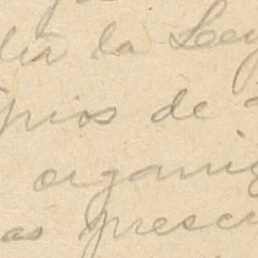 la Ley
pios de
organiz
as prescr